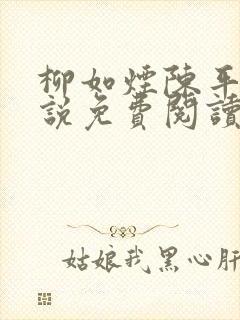 柳如煙陳平
說免費閱讀
姑娘我黑心肝